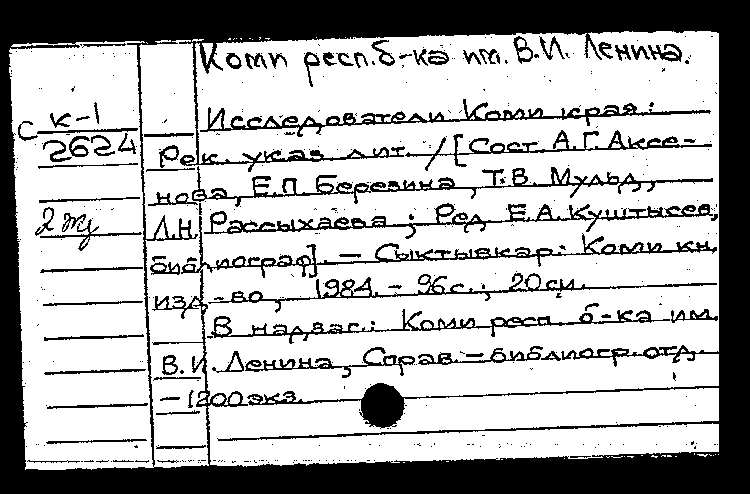 Коми респ. б-ка им. В.И. Ленина.
С К-1
2624
Исследователи Коми края:
Рек. указ. лит. / [Сост. А.Г. Аксе-
нова, Е.П. Березина, Т.В. Мульд,
2 экз
Л.Н. Рассыхаева; Ред. Е.А. Куштысев,
библиограф]. — Сыктывкар: Коми кн.
изд-во, 1984. - 96 с.; 20 см.
В надзаг.: Коми респ. б-ка им.
В.И. Ленина, Справ.-библиогр. отд.
— 1200 экз.